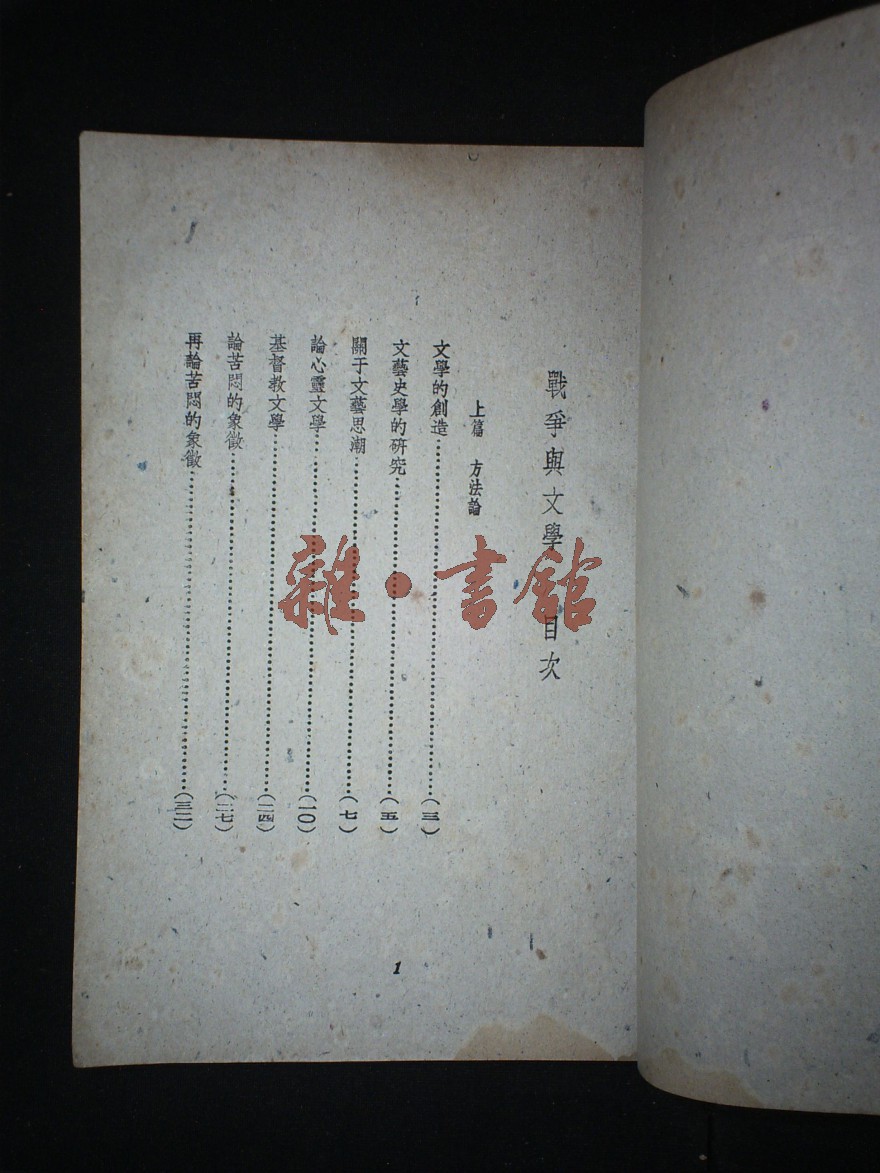 戰爭與文學 目次
上篇 方法論
文學的創造……(三)
文藝史學的研究……(五)
關于文藝思潮……(七)
論心靈文學……(一〇)
基督教文學……(二四)
論苦悶的象徵……(二七)
再論苦悶的象徵……(三二)
1
雜·書館